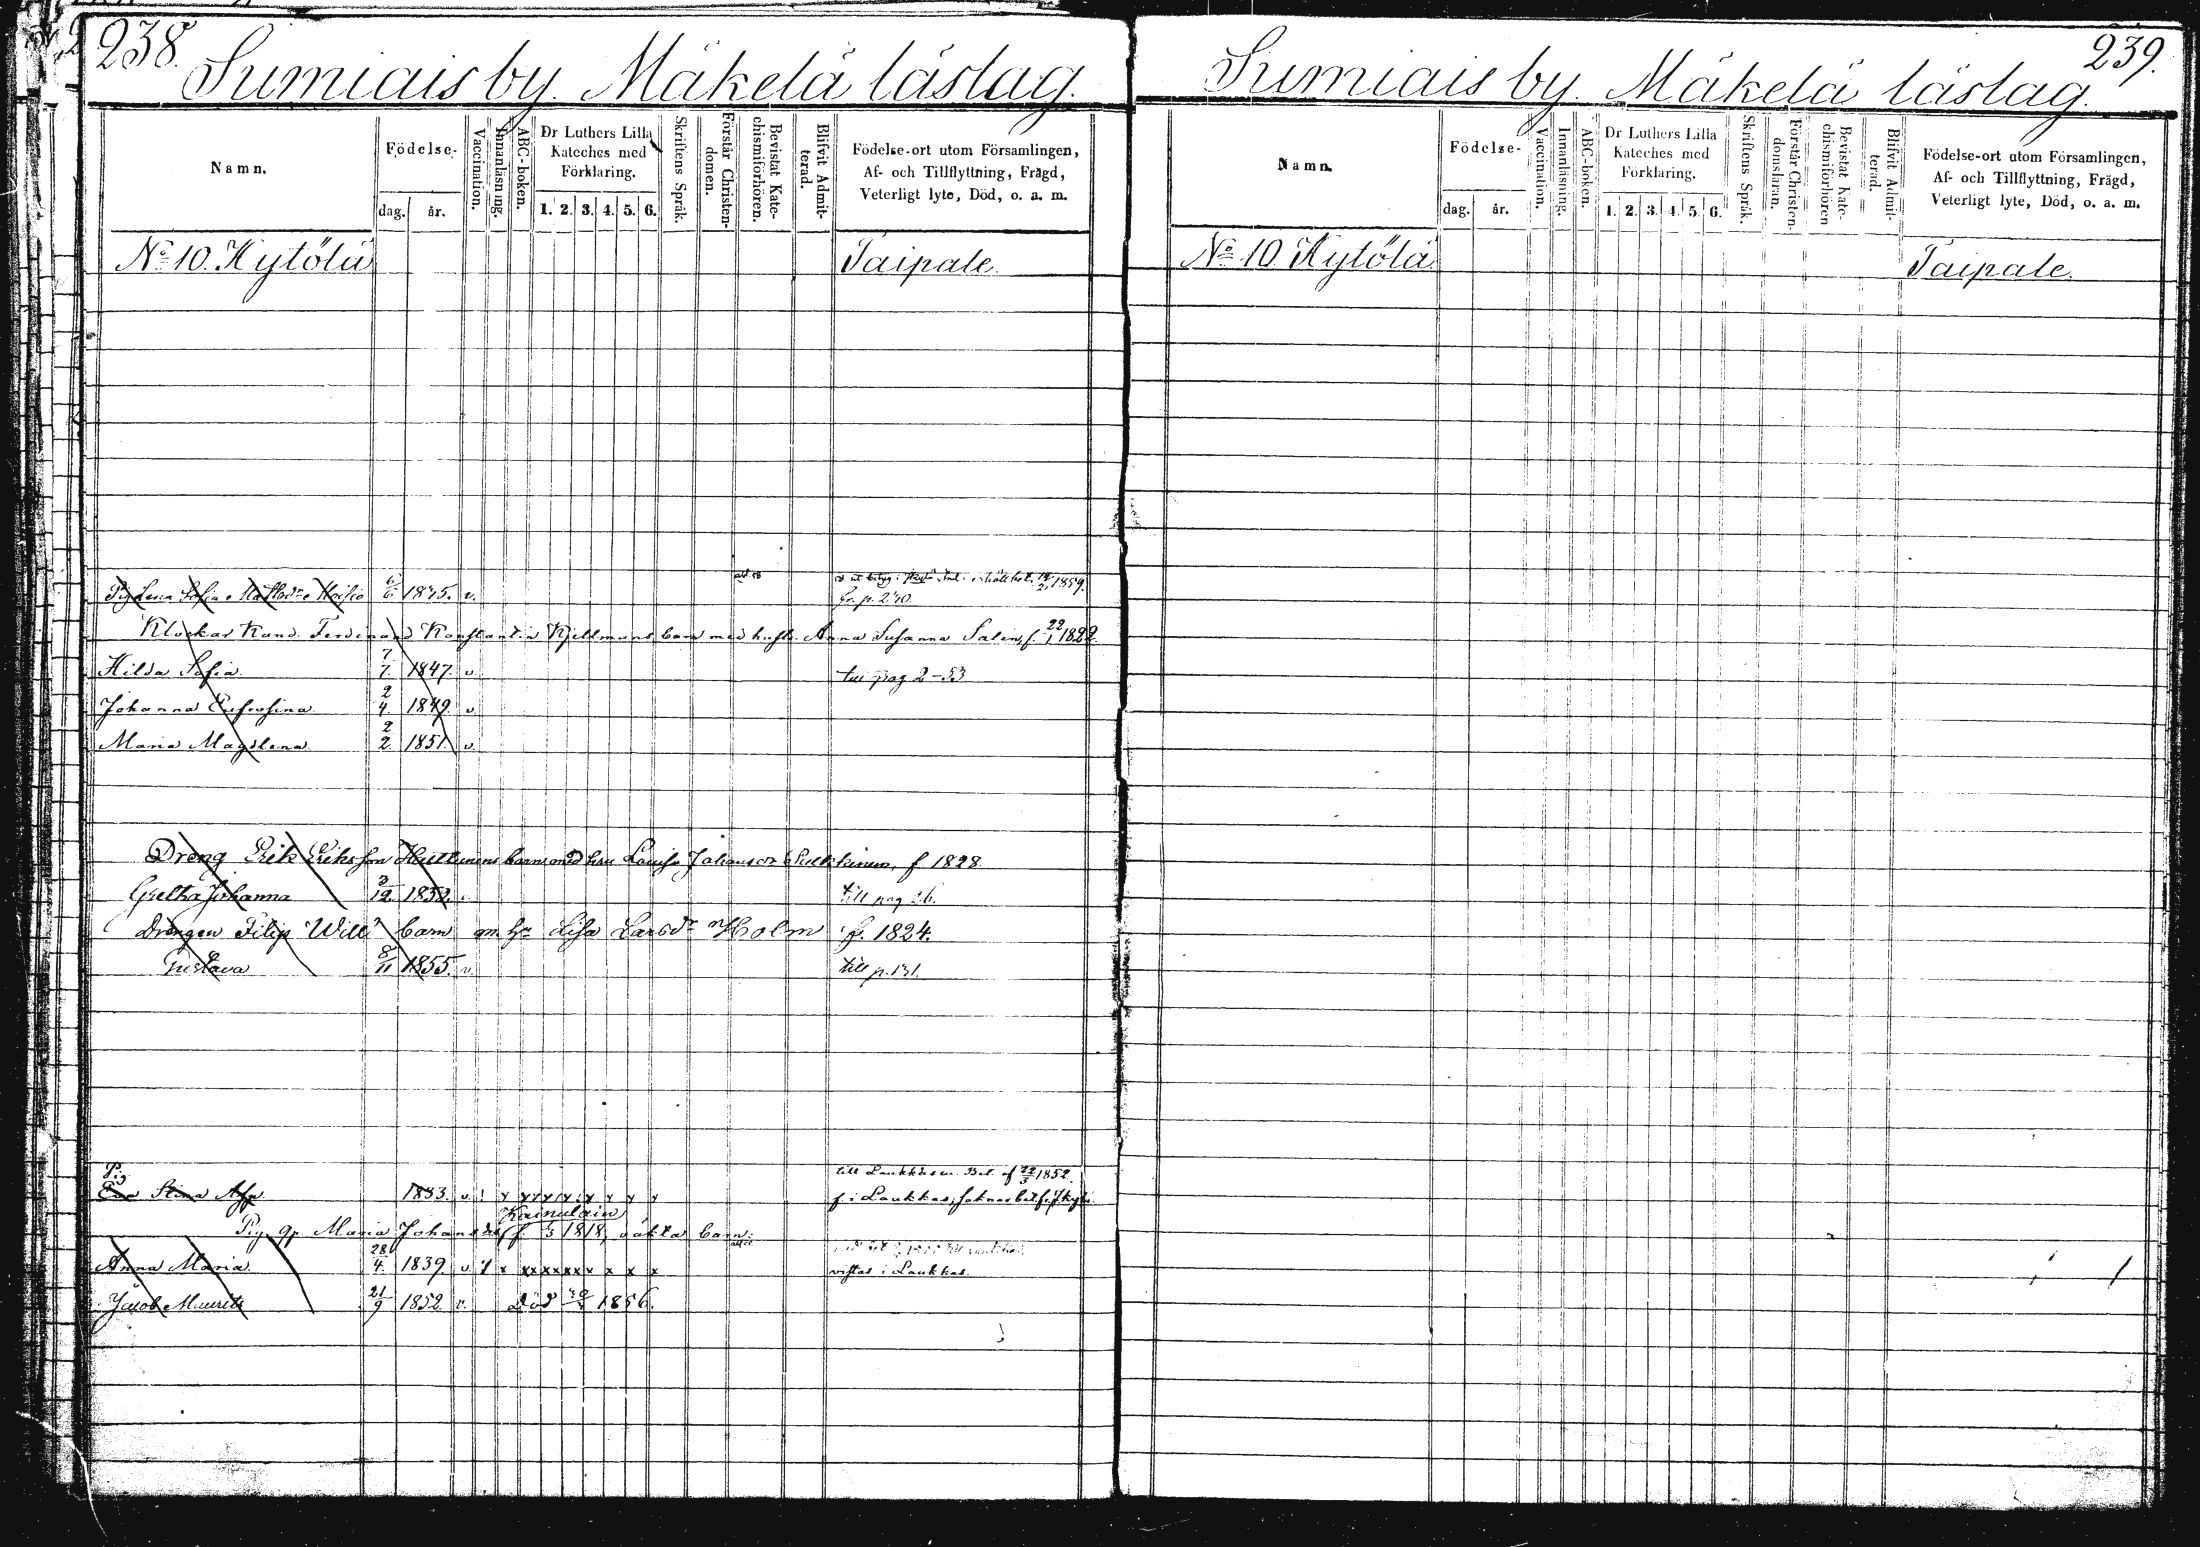 238.
Sumiais by. Mäkelä läslag.
Namn.
Födelse-
dag. år.
Vaccination.
Innanläsning.
ABC-boken.
Dr Luthers Lilla
Kateches med
Förklaring.
1. 2. 3. 4. 5. 6.
Skriftens Språk.
Förstår Christen-
domen.
Bevistat Kate-
chismiförhören.
Blifvit Admit-
terad.
Födelse-ort utom Församlingen,
Af- och Tillflyttning, Frägd,
Veterligt lyte, Död, o. a. m.
No 10. Kytölä Taipale.
1859.
Pig Lena Sofia 6/6 1845. v. fr. p. 240.
Klockar Kand. Ferdinand Konstantin Kjellmans barn med hust. Anna Susanna Salin, f. 22/1 1822.
Hilda Sofia. 7/7. 1847. v. till pag 2-53
Johanna Eufrosina. 2/4. 1849. v.
Maria Magdlena. 2/2 1851. v.
Dreng Erik Eriksson barn med hru Lovisa Johansdr f 1828.
Gretha Johanna 3/12 1852. v. till pag 26.
Drängen Filip Will barn m. hu Lisa Larsdr Holm f. 1824.
Gustava 8/11 1855. v. till p. 131.
till Laukkas m. Bet. af 22/3 1852.
Pig
Eva Stina 1833. v. f. i Laukkas,
Kainulain
Pig Maria Johansdr f. 1818, oäkta barn:
Anna Maria. 28/4. 1839. v x xxxxxxx x x x vistas i Laukkas.
Jacob Maurits 21/9 1852. v. död 1856.
239.
Sumiais by. Mäkelä läslag.
Namn.
Födelse-
dag. år.
Vaccination.
Innanläsning.
ABC-boken.
Dr Luthers Lilla
Kateches med
Förklaring.
1. 2. 3. 4. 5. 6.
Skriftens Språk.
Förstår Christen-
domsläran.
Bevistat Kate-
chismiförhören
Blifvit Admit-
terad.
Födelse-ort utom Församlingen,
Af- och Tillflyttning, Frägd,
Veterligt lyte, Död, o. a. m.
No 10 Kytölä Taipale.